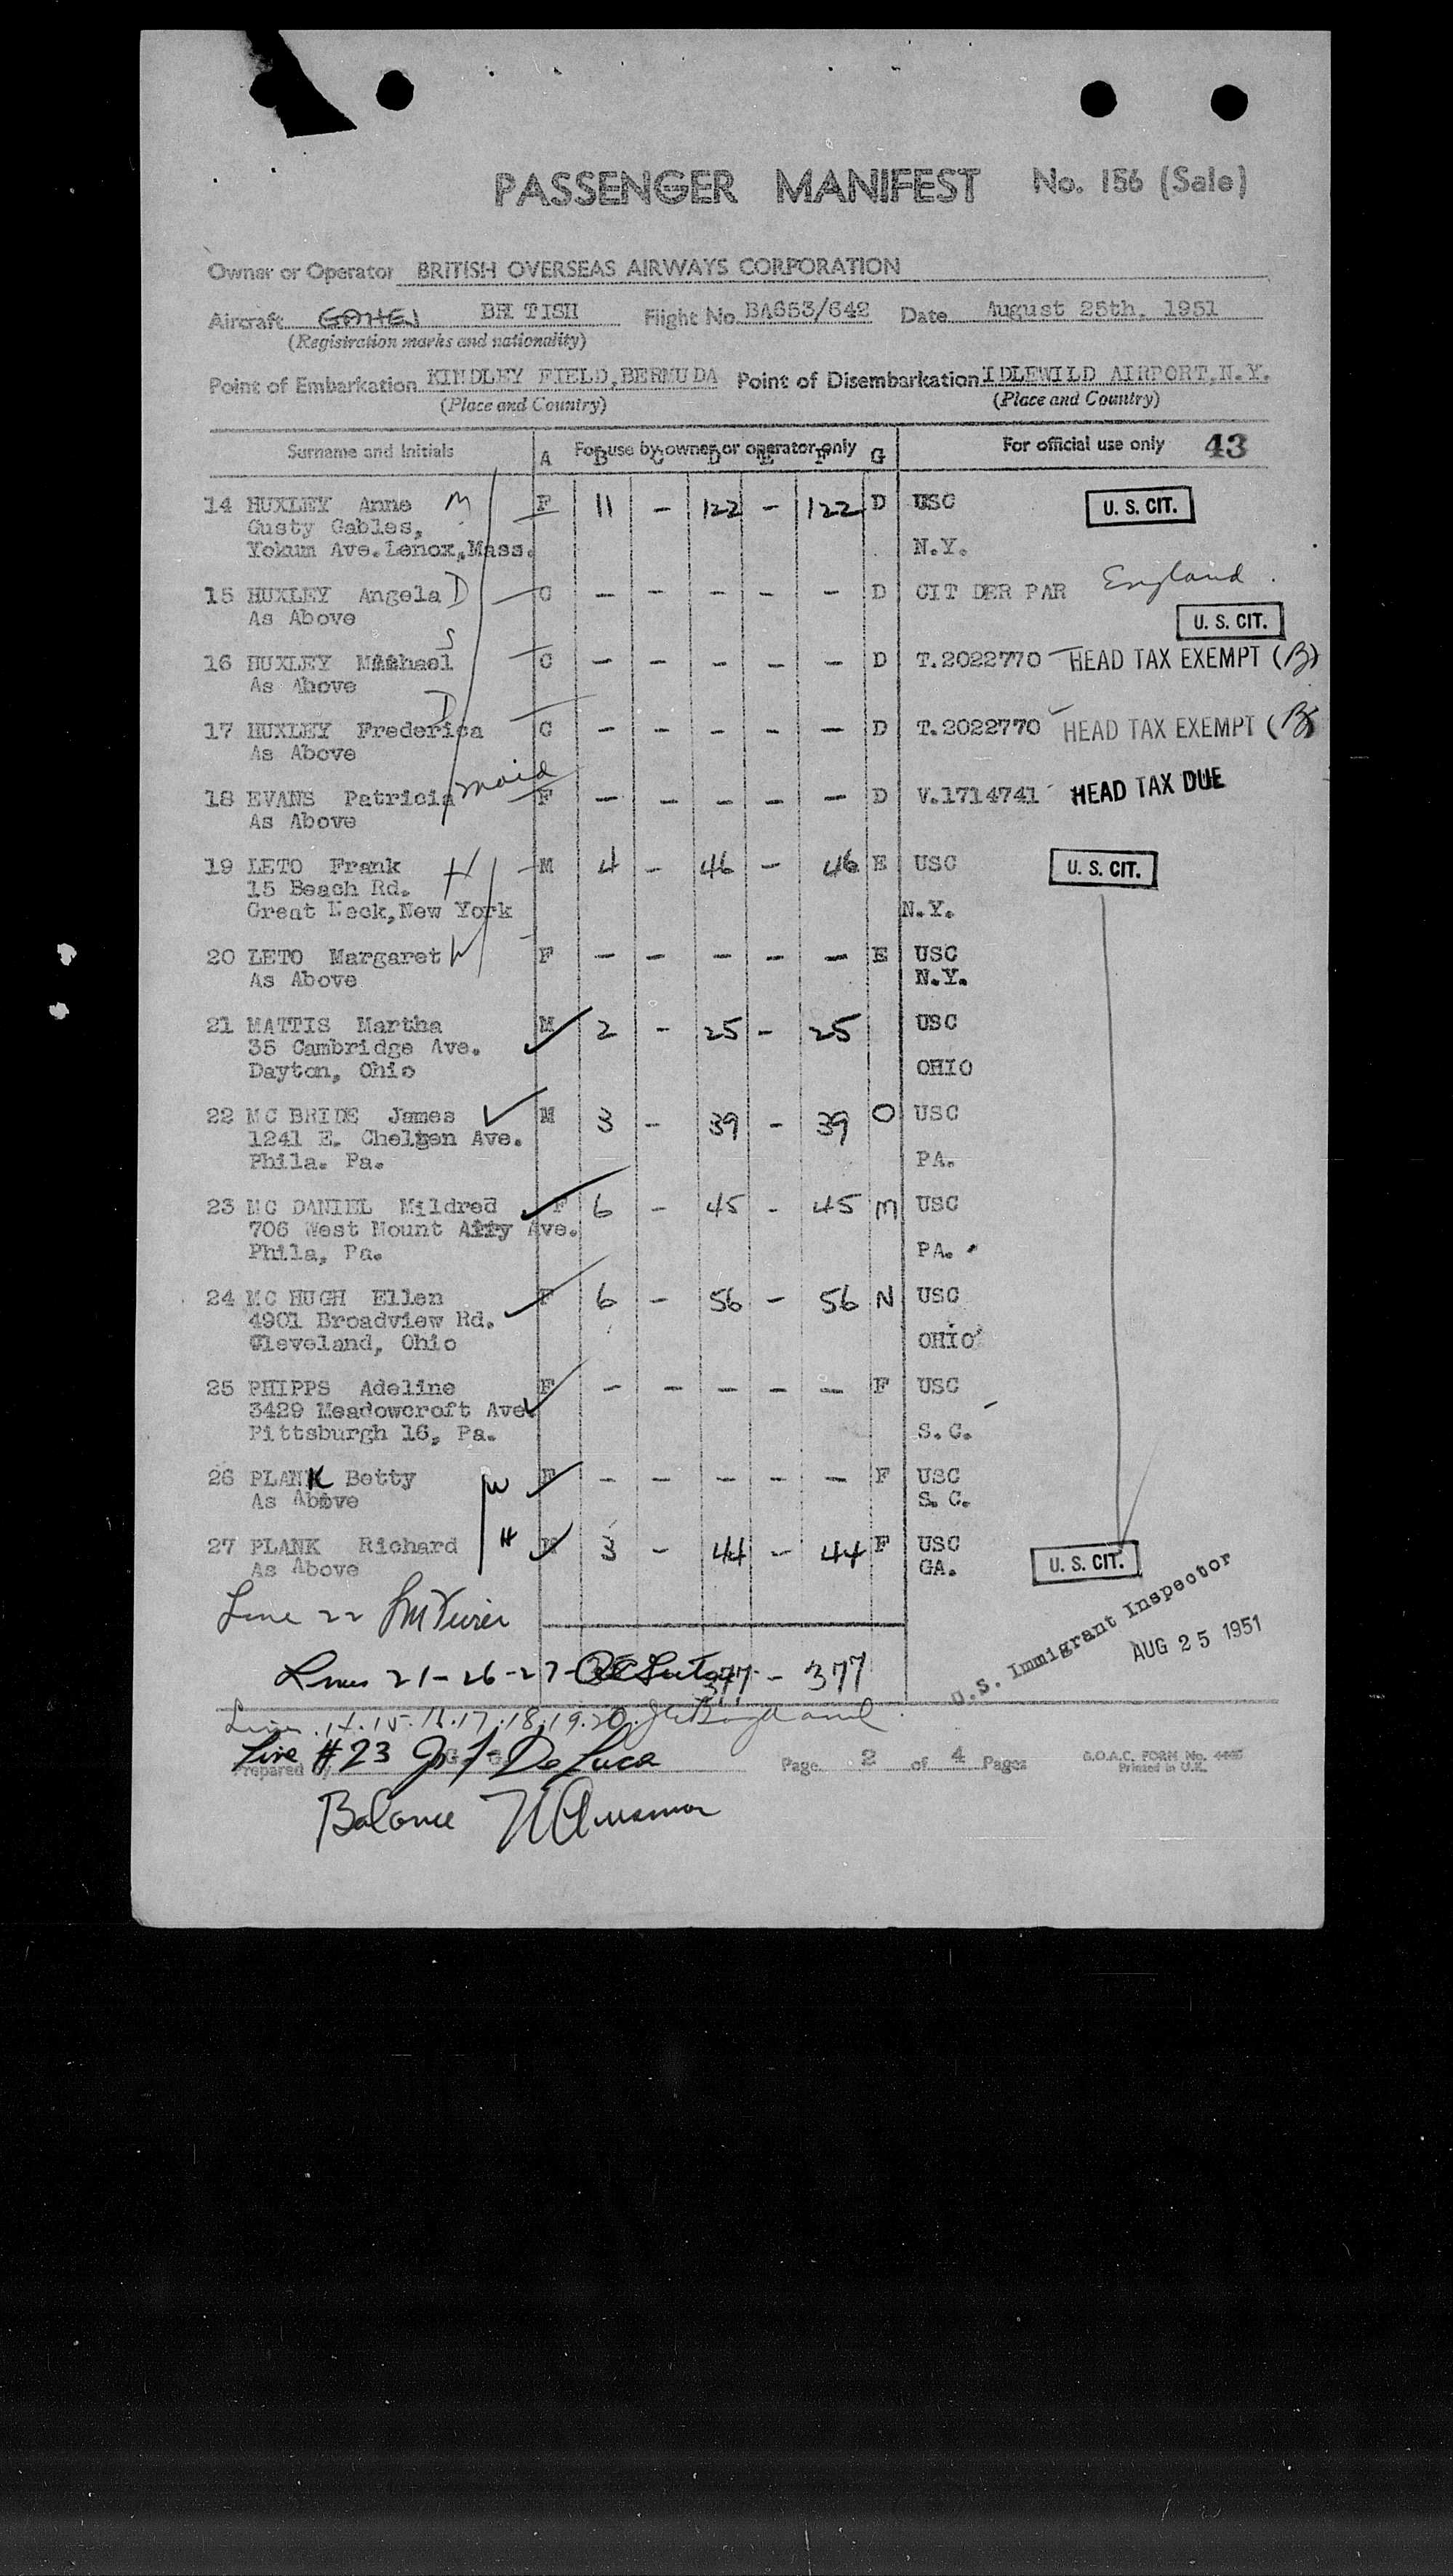 PASSENGER MANIFEST No. 156 (Sale)
Owner or Operator BRITISH OVERSEAS AIRWAYS CORPORATION
Aircraft BRITISH Flight No. BA653/642 Date August 25th, 1951
(Registration marks and nationality)
Point of Embarkation KINDLEY FIELD, BERMUDA Point of Disembarkation IDLEWILD AIRPORT, N.Y.
(Place and Country) (Place and Country)
Surname and Initials For use by owner or operator only For official use only 43
A B C D E F G
14 HUXLEY Anne M F 11 - 122 - 122 D USC U. S. CIT.
Gusty Gables,
Yokum Ave. Lenox, Mass. N.Y.
15 HUXLEY Angela D C - - - - - D CIT DER PAR England
As Above U. S. CIT.
S
16 HUXLEY Michael C - - - - - D T.2022770 HEAD TAX EXEMPT (B)
As Above
D
17 HUXLEY Frederica C - - - - - D T.2022770 HEAD TAX EXEMPT (B)
As Above
maid
18 EVANS Patricia F - - - - - D V.1714741 HEAD TAX DUE
As Above
19 LETO Frank H M 4 - 46 - 46 E USC U. S. CIT.
15 Beach Rd.
Great Neck, New York N.Y.
20 LETO Margaret W F - - - - - E USC
As Above N.Y.
21 MATTIS Martha M 2 - 25 - 25 USC
35 Cambridge Ave.
Dayton, Ohio OHIO
22 MC BRIDE James M 3 - 39 - 39 O USC
1241 E. Chelten Ave.
Phila. Pa. PA.
23 MC DANIEL Mildred F 6 - 45 - 45 M USC
706 West Mount Airy Ave.
Phila, Pa. PA.
24 MC HUGH Ellen F 6 - 56 - 56 N USC
4901 Broadview Rd.
Cleveland, Ohio OHIO
25 PHIPPS Adeline F - - - - - F USC
3429 Meadowcroft Ave.
Pittsburgh 16, Pa. S.C.
26 PLANK Betty W F - - - - - F USC
As Above S. C.
27 PLANK Richard H M 3 - 44 - 44 F USC
As Above GA. U. S. CIT.
Line 22
U.S. Immigrant Inspector
AUG 25 1951
Lines 21-26-27- 377 - 377
Line 14.15.16.17.18.19.20.
Line #23 De Luca
Prepared by Page 2 of 4 Pages B.O.A.C. FORM No.
Printed in U.K.
Balance